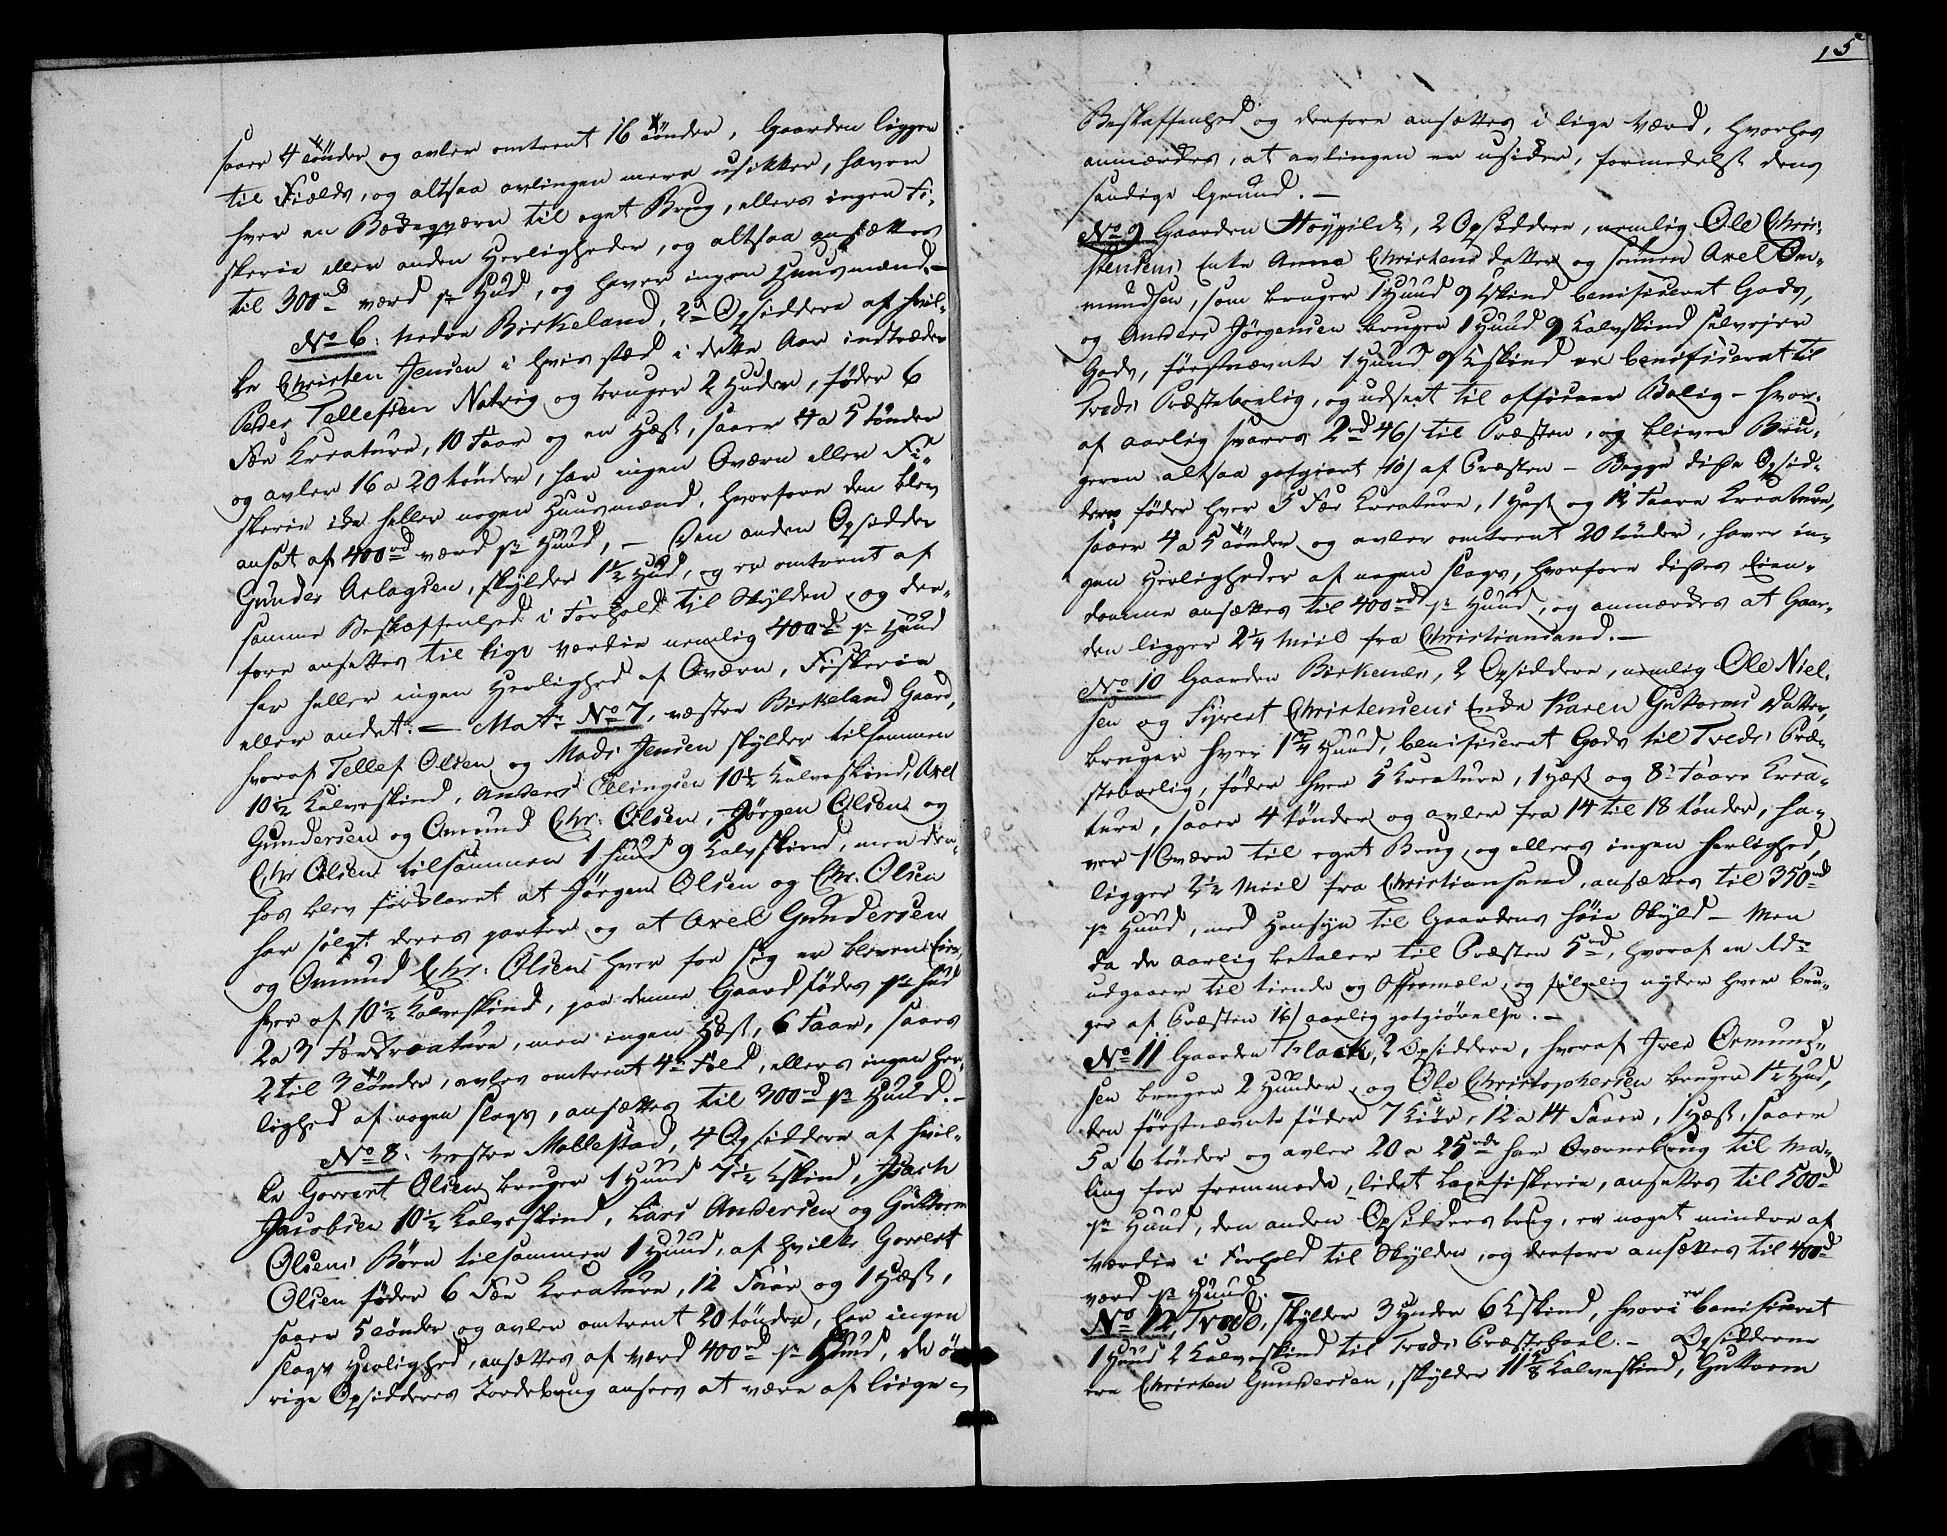 saaer 4 tønder og avler omtrent 16 tønder, Gaarden ligger
til Fields, og altsaa avlingen mere usikker, haver
hver en Bækkeqværn til eget Brug, ellers ingen Fi-
skerie eller anden Herligheder, og altsaa ansættes
til 300rd værd pr Hud, og haver ingen Huusmænd.—
No 6: nedre Birkeland, 2de Opsiddere af hvil-
ke Christen Jensen i hvis sted i dette Aar indtræder
Peder Tellefsen Natvig og bruger 2 Huder, føder 6
Fæe Kreature, 10 Faar og en Hest, saaer 4 a 5 tønder
og avler 16 a 20 tønder, har ingen Qværn eller Fi-
skerie ikke heller nogen Huusmænd, hvorfore den blev
ansat af 400rd værd pr Huud, — Den anden Opsidder
Gunder Aslagsen, skylder 1½ Hud, og er omtrent af
samme Beskaffenhed i Forhold til Skylden, og der-
fore ansettes til lige værdie nemlig 400rd pr Huud
har heller ingen Herlighed af Qværn, Fiskerie
eller andet. — Matr No 7, væstre Birkeland Gaard,
hvoraf Tellef Olsen og Mads Jensen skylder tilsammen
10½ Kalveskind, Anders Ellingsen 10½ Kalveskind, Axel
Gundersen og Omund Chr: Olsen, Jørgen Olsen og
Chr Olsen tilsammen 1 huud 9 Kalvskind, men der-
hos blev forklaret at Jørgen Olsen og Chr. Olsen
har solgt deres parter og at Axel Gundersen
og Omund Chr: Olsen hver for sig er bleven Eier,
hver af 10½ Kalveskind, paa denne Gaard fødes pr hud
2 a 3 Fæe Kreature, men ingen Hest, 6 Faar, saaes
2 til 3 tønder, avles omtrent 4de Fold, ellers ingen her-
lighed af nogen slags, ansættes til 300rd pr Huud.—
No 8: vestre Mollestad, 4 Opsiddere af hvil-
ke Gorvert Olsen bruger 1 Huud 7½ Kskind, Isach
Jacobsen 10½ Kalveskind, Lars Andersen og Guttorm
Olsens Børn tilsammen 1 Huud, af hvilke Gorvert
Olsen føder 6 Fæe Kreature, 12 Faar og 1 Hest,
saaer 5 tønder og avler omtrent 20 tønder, har ingen
slags Herlighed, ansættes af værd 400rd pr Huud, de øv-
rige Opsidderes Jordebrug ansees at være af liige
15
Beskaffenhed og derfore ansættes i lige Værd, hvorhos
anmærkes, at avlingen er usikker, formedelst dens
sandige Grund.—
No 9 Gaarden Høypildt, 2 Opsiddere, nemlig Ole Chri-
stensens Enke Anna Christens datter og sønnen Axel Om-
mundsen, som bruger 1 Huud 9 Kskind benificeret Gods,
og Anders Jørgensen bruger 1 Huud 9 Kalvskind selvejer
Gods, førstnævnte 1 Huud 9 Kskind er benificeret til
Treds Præstebolig, og udseet til officeer Bolig — hvor-
af aarlig svares 2rd 46s til Præsten, og bliver Bru-
geren altsaa godgiort 10s af Præsten — Begge disse Opsid-
dere føder hver 5 Fæe Kreature, 1 Hest og 12 Faare Kreature,
saaer 4 a 5 tønder og avler omtrent 20 tønder, haver in-
gen Herligheder af nogen slags, hvorfore disses Eien-
domme ansættes til 400rd pr Huud, og anmærkes at Gaar-
den ligger 2¼ Miil fra Christiansand.—
No 10 Gaarden Birkenes, 2 Opsiddere, nemlig Ole Niel-
sen og Sivert Christensens Enke Karen Guttorms datter,
bruger hver 1¾ Huud, benificeret Gods til Treds Præ-
stebolig, føder hver 5 Kreature, 1 Hest og 8 Faare Krea-
ture, saaer 4 tønder og avler fra 14 til 18 tønder, ha-
ver 1 Qværn til eget Brug, og ellers ingen herlighed,
ligger 2½ Miil fra Christiansand, ansættes til 350rd
pr Huud, med Hensyn til Gaardens høie Skyld — Men
da de aarlig betaler til Præsten 5rd, hvoraf en Ad
udgaaer til tiende og Offermæle, og følgelig nyder hver Bru-
ger af Præsten 16s aarlig godgiørelse.—
No 11 Gaarden Flack, 2 Opsiddere, hvoraf Iver Ormund-
sen bruger 2 Huuder, og Ole Christophersen bruger 1½ Hud,
den førstnævnte føder 7 Kiør, 12 a 14 Faaer, 1 Hest, saaer
5 a 6 tønder og avler 20 a 25 tdr har Qværnebrug til Ma-
ling for fremmede, lidet Laxefiskerie, ansættes til 500rd
pr Huud, den anden Opsidders brug, er noget mindre af
værdie i Forhold til Skylden, og derfore ansættes til 400rd
værd pr Huud.
No 12, Træde, skylder 3 Huder 6 Kskind, hvori er benificeret
1 Huud 2 Kalveskind til Treds Præstebol.— Opsidderne
ere Christen Gundersen, skylder 11⅝ Kalveskind, Guttorm